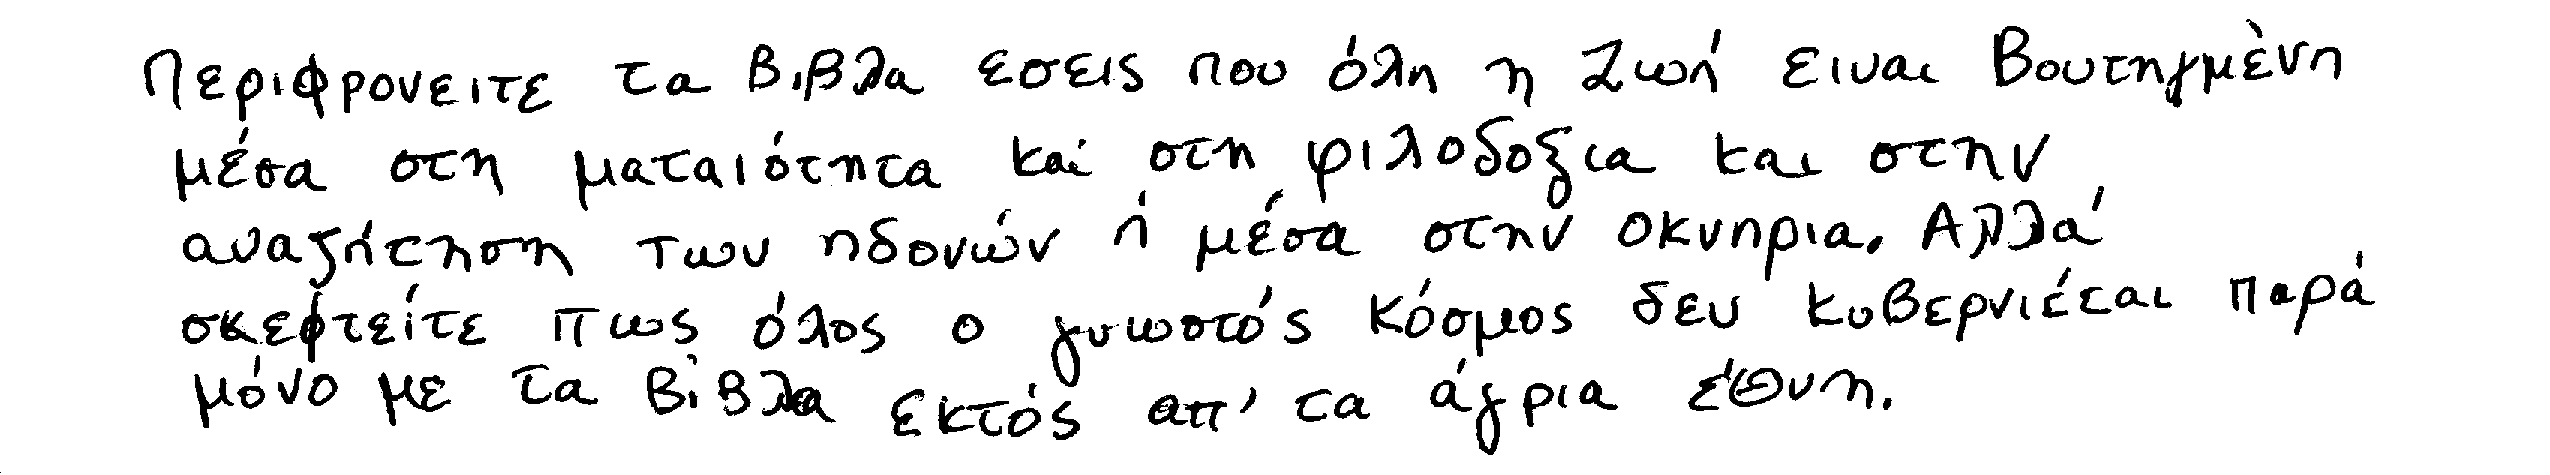 Περιφρονειτε τα βιβλα εσεις που όλη η ζωή ειναι βουτηγμένη
μέσα στη ματαιότητα και στη φιλοδοξια και στην
αναζήτηση των ηδονών ή μέσα στην οκνηρια. Αλλά
σκεφτείτε πως όλος ο γνωστός κόσμος δεν κυβερνιέται παρά
μόνο με τα βιβλα εκτός απ' τα άγρια έθνη.